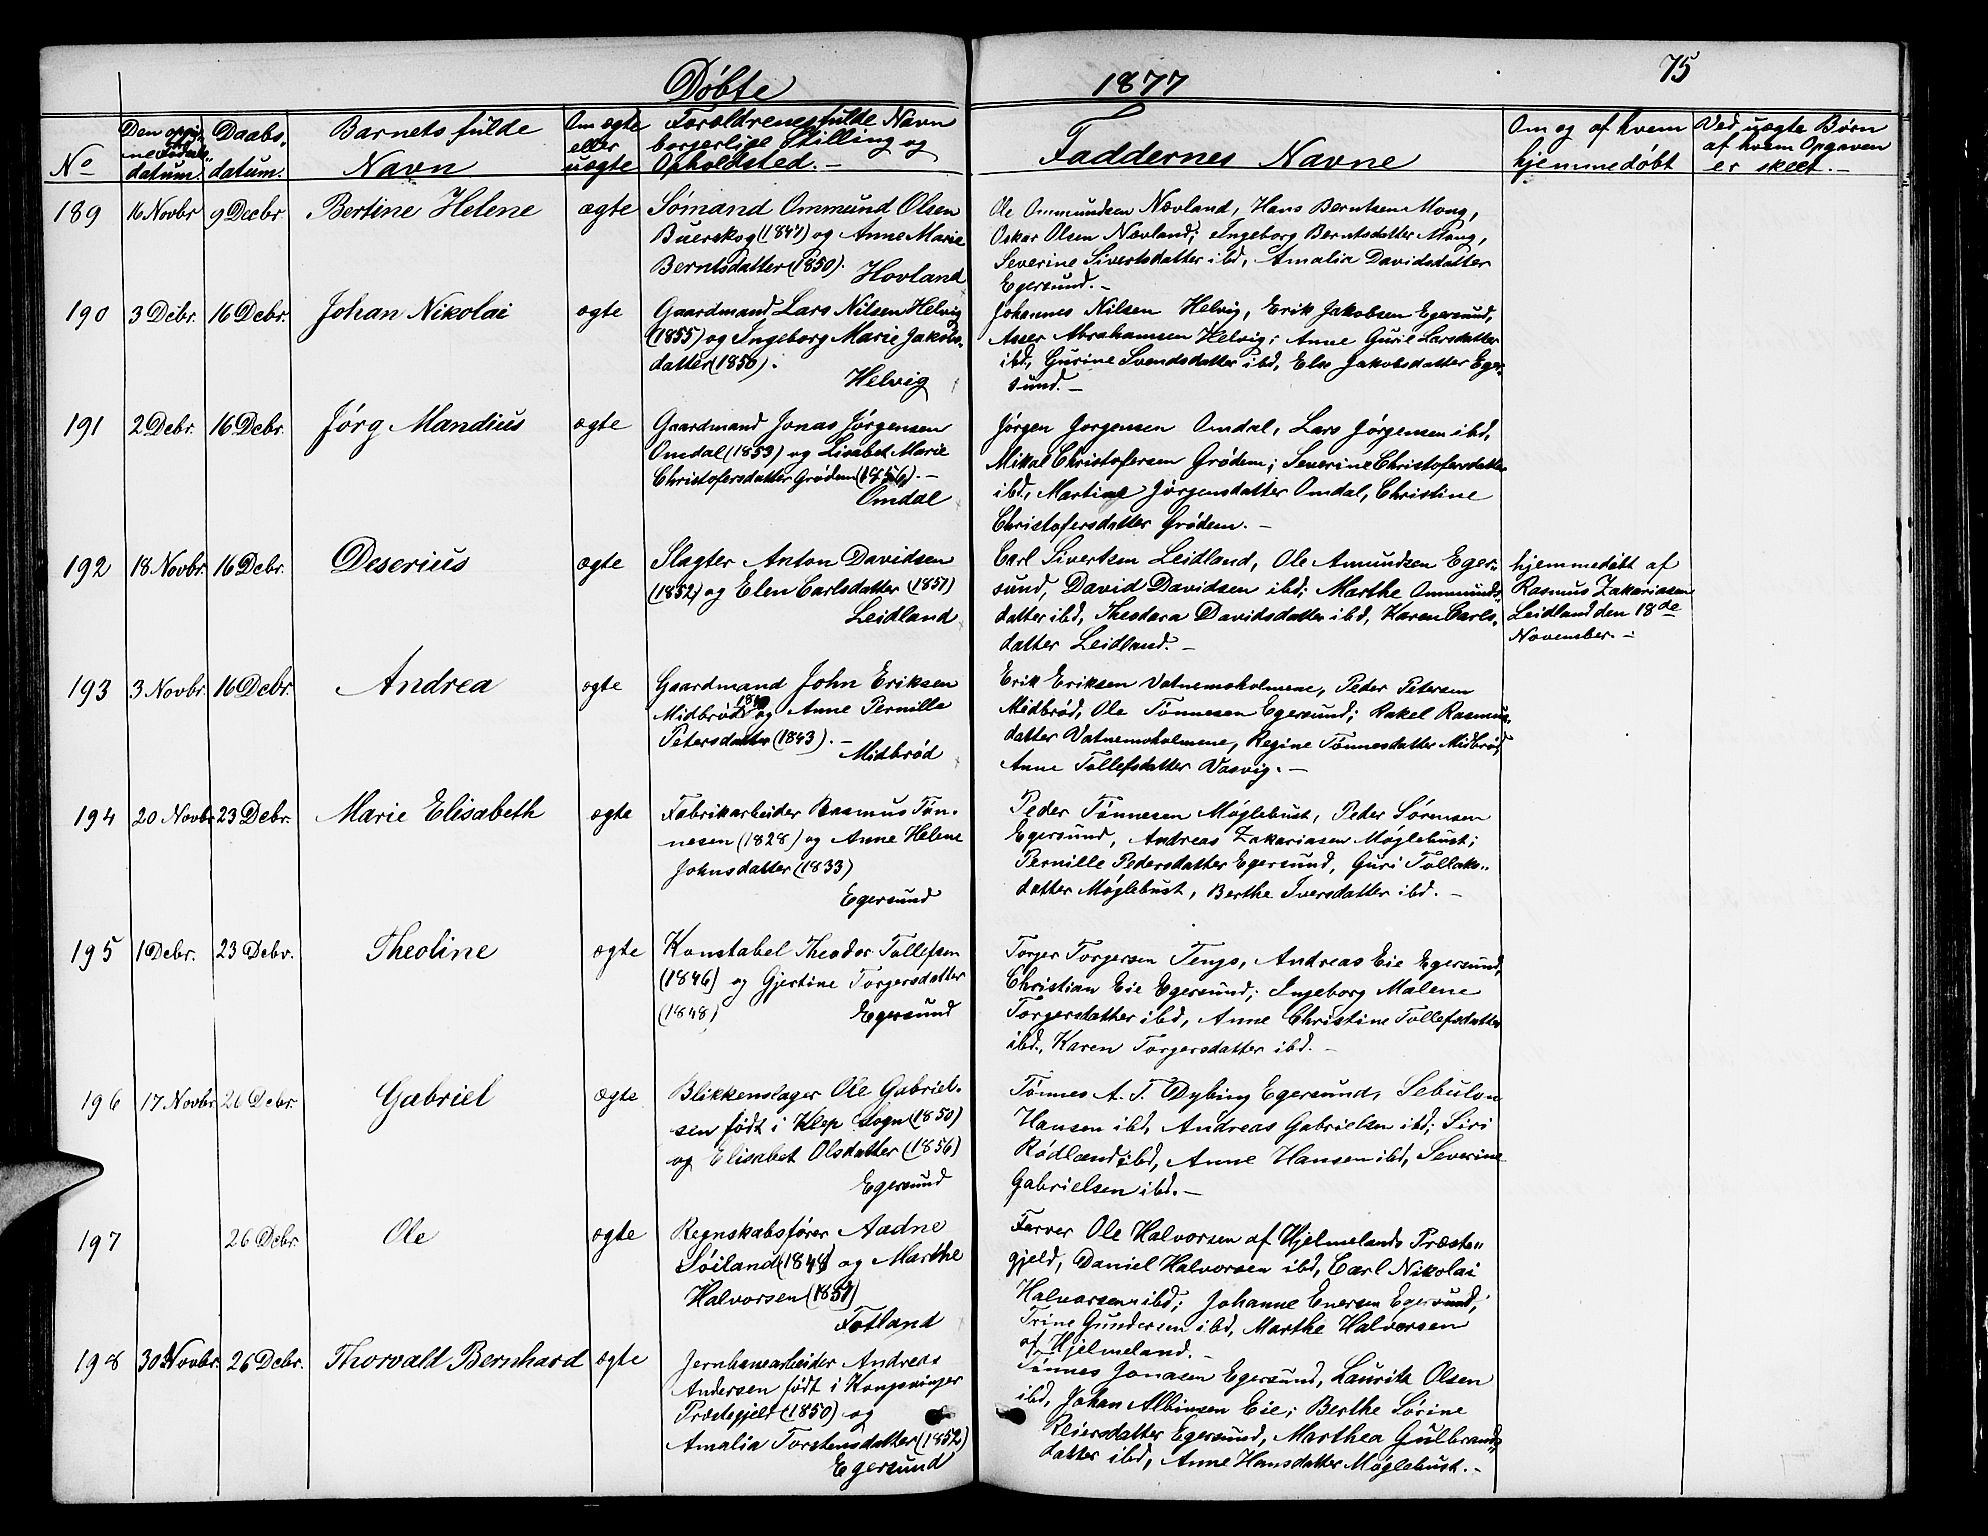 75
Døbte 1877
No
Den opgivne Fødselsdatum.
Daabsdatum.
Barnets fulde Navn
Om ægte eller uægte
Forældrenes fulde Navn borgerlige Stilling og Opholdsted. -
Faddernes Navne
Om og af hvem hjemmedøbt
Ved uægte Børn af hvem Opgaven er skeet. -
189 16 Novbr 9 Decbr. Bertine Helene ægte
Sømand Ommund Olsen
Buerskog (1847) og Anne Marie
Berntsdatter (1850).
Hovland
Ole Ommundsen Nævland, Hans Berntsen Mong,
Oskar Olsen Nævland; Ingeborg Berntsdatter Mong,
Severine Sivertsdatter ibd, Amalia Davidsdatter
Egersund. -
190 3 Debr. 16 Debr. Johan Nikolai ægte
Gaardmand Lars Nilsen Helvig
(1855) og Ingeborg Marie Jakobs-
datter (1850).
Helvig
Johannes Nilsen Helvig, Erik Jakobsen Egersund,
Asser Abrahamsen Helvig; Anne Gurie Larsdatter
ibd, Gurine Svendsdatter ibd, Else Jakobsdatter Eger-
sund. -
191 2 Debr. 16 Debr. Jørg Mandius ægte
Gaardmand Jonas Jørgensen
Omdal (1853) og Lisabet Marie
Christofersdatter Grødem (1856). -
Omdal
Jørgen Jorgensen Omdal, Lars Jørgensen ibd,
Mikal Christofersen Grødem; Severine Christofersdatter
ibd, Martine Jørgensdatter Omdal, Christine
Christofersdatter Grødem. -
192 18 Novbr. 16 Debr. Deserius ægte
Slagter Anton Davidsen
(1852) og Elen Carlsdatter (1851)
Leidland
Carl Sivertsen Leidland, Ole Amundsen Eger-
sund, David Davidsen ibd; Marthe Ommunds-
datter ibd, Theodora Davidsdatter ibd, Karen Carls-
datter Leidland. -
hjemmedøbt af
Rasmus Zakariasen
Leidland den 18de
November. -
193 3 Novbr. 16 Debr. Andrea ægte
Gaardmand John Eriksen
Midbrød og Anne Pernille
Petersdatter (1843). -
Midbrød
Erik Eriksen Vatnemoholmene, Peder Petersen
Midbrød, Ole Tønnesen Egersund; Rakel Rasmus-
datter Vatnemoholmene, Regine Tønnesdatter Midbrød,
Anne Tollefsdatter Vasvig. -
194 20 Novbr 23 Debr. Marie Elisabeth ægte
Fabrikarbeider Rasmus Tøn-
nesen (1828) og Anne Helene
Johnsdatter (1833)
Egersund
Peder Tønnesen Møglebust, Peder Sørensen
Egersund, Andreas Zakariasen Møglebust;
Pernille Pedersdatter Egersund, Guri Tollaks-
datter Møglebust, Berthe Iversdatter ibd. -
195 1 Debr. 23 Debr. Theoline ægte
Konstabel Theodor Tollefsen
(1846) og Gjertine Torgersdatter
(1848)
Egersund
Torger Torgersen Tengs, Andreas Eie Egersund,
Christian Eie Egersund; Ingeborg Malene
Torgersdatter ibd, Anne Christine Tollefsdatter
ibd., Karen Torgersdatter ibd. -
196 17 Novbr 26 Debr. Gabriel ægte
Blikkenslager Ole Gabriel-
sen født i Klep Sogn (1850)
og Elisabet Olsdatter (1856)
Egersund
Tønnes A. T. Dybing Egersund, Sebulon
Hansen ibd, Andreas Gabrielsen ibd; Siri
Rødland ibd, Anne Hansen ibd, Severine
Gabrielsen ibd. -
197 26 Debr. Ole ægte
Regnskabsfører Aadne
Søiland (1848) og Marthe
Halvorsen (1851)
Fotland
Farver Ole Halvorsen af Hjelmelands Præste-
gjeld, Daniel Halvorsen ibd, Carl Nikolai
Halvorsen ibd; Johanne Enersen Egersund,
Trine Gundersen ibd, Marthe Halvorsen
af Hjelmeland. -
198 30 Novbr. 26 Debr. Thorvald Bernhard ægte
Jernbanearbeider Andreas
Andersen født i Kongsvinger
Præstegjeld (1850) og
Amalia Torstensdatter (1852)
Egersund
Tønnes Jonasen Egersund, Lauritz Olsen
ibd, Johan Albinsen Eie; Berthe Sørine
Reiersdatter Egersund, Marthea Gulbrands-
datter ibd, Anne Hansdatter Møglebust. -